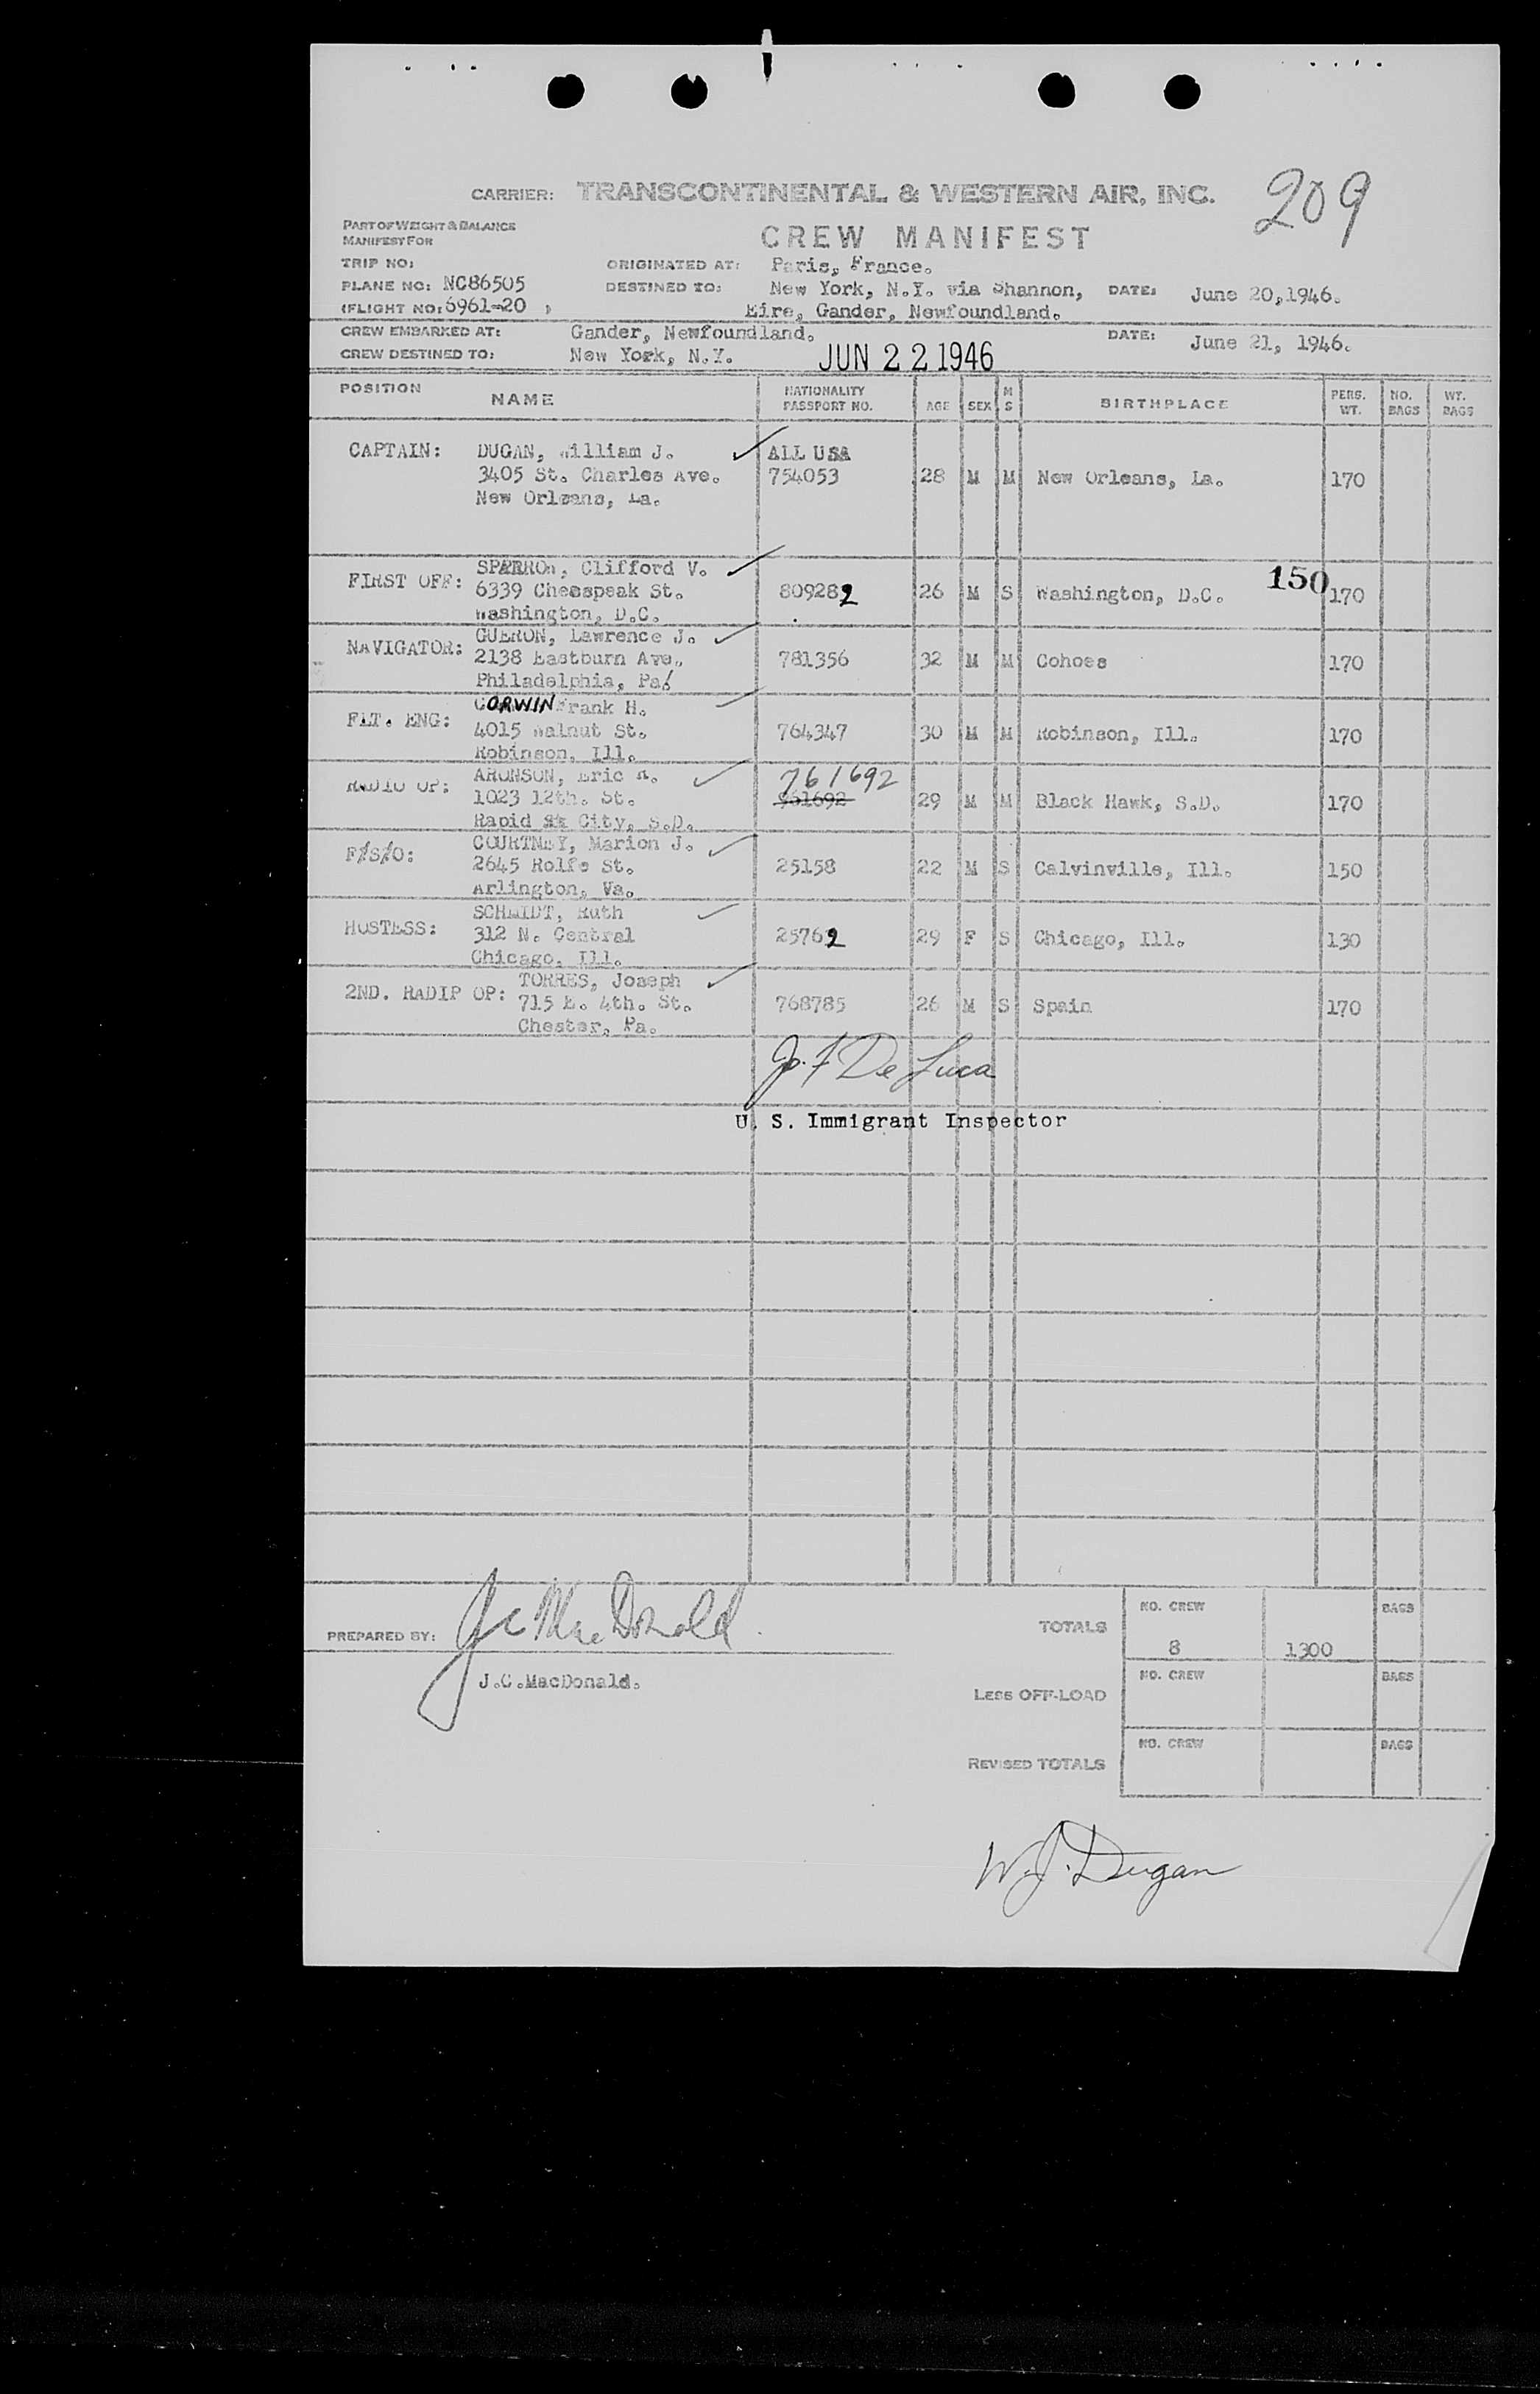 209
CARRIER: TRANSCONTINENTAL & WESTERN AIR, INC.
PART OF WEIGHT & BALANCE
MANIFEST FOR
CREW MANIFEST
TRIP NO: ORIGINATED AT: Paris, France.
PLANE NO: NC86505 DESTINED TO: New York, N.Y. via Shannon, DATE: June 20,1946.
(FLIGHT NO: 6961-20 ) Eire, Gander, Newfoundland.
CREW EMBARKED AT: Gander, Newfoundland. DATE: June 21, 1946.
CREW DESTINED TO: New York, N.Y. JUN 22 1946
POSITION NAME NATIONALITY PASSPORT NO. AGE SEX M S BIRTHPLACE PERS. WT. NO. BAGS WT. BAGS
CAPTAIN: DUGAN, William J. ALL USA
3405 St. Charles Ave. 754053 28 M M New Orleans, La. 170
New Orleans, La.
SPARROW, Clifford V. 150
FIRST OFF: 6339 Cheespeak St. 809282 26 M S Washington, D.C. 170
Washington, D.C.
NAVIGATOR: GUERON, Lawrence J.
2138 Eastburn Ave. 781356 32 M M Cohoes 170
Philadelphia, Pa.
CORWIN Frank H.
FLT. ENG: 4015 Walnut St. 764347 30 M M Robinson, Ill. 170
Robinson, Ill.
RADIO OP: ARONSON, Eric A. 761692
1023 12th. St. 961692 29 M M Black Hawk, S.D. 170
Rapid City, S.D.
COURTNEY, Marion J.
F/S/O: 2645 Rolfe St. 25158 22 M S Calvinville, Ill. 150
Arlington, Va.
SCHMIDT, Ruth
HOSTESS: 312 N. Central 25762 29 F S Chicago, Ill. 130
Chicago, Ill.
TORRES, Joseph
2ND. RADIP OP: 715 E. 4th. St. 768785 26 M S Spain 170
Chester, Pa.
Jo. F De Luca
U. S. Immigrant Inspector
PREPARED BY: J C MacDonald
J.C.MacDonald.
TOTALS NO. CREW 8 1300 BAGS
LESS OFF-LOAD NO. CREW BAGS
REVISED TOTALS NO. CREW BAGS
W.J. Dugan